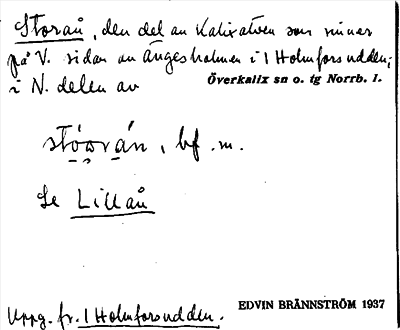 Storån, den del av Kalixälven som rinner
på V. sidan av Ängesholmen i 1 Holmforsudden;
i N. delen av Överkalix sn o. tg Norrb. l.
stóωrán, bf. m.
Se Lillån
Uppg. fr. 1 Holmforsudden. EDVIN BRÄNNSTRÖM 1937